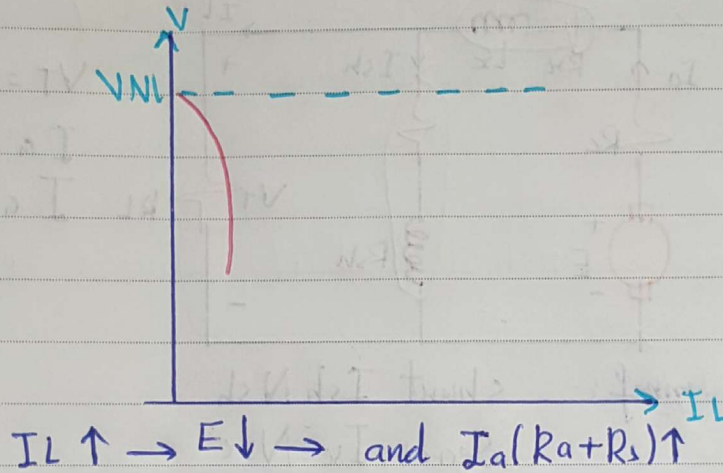 V
VNL
IL
IL ↑ → E↓ → and Ia(Ra+Rs)↑